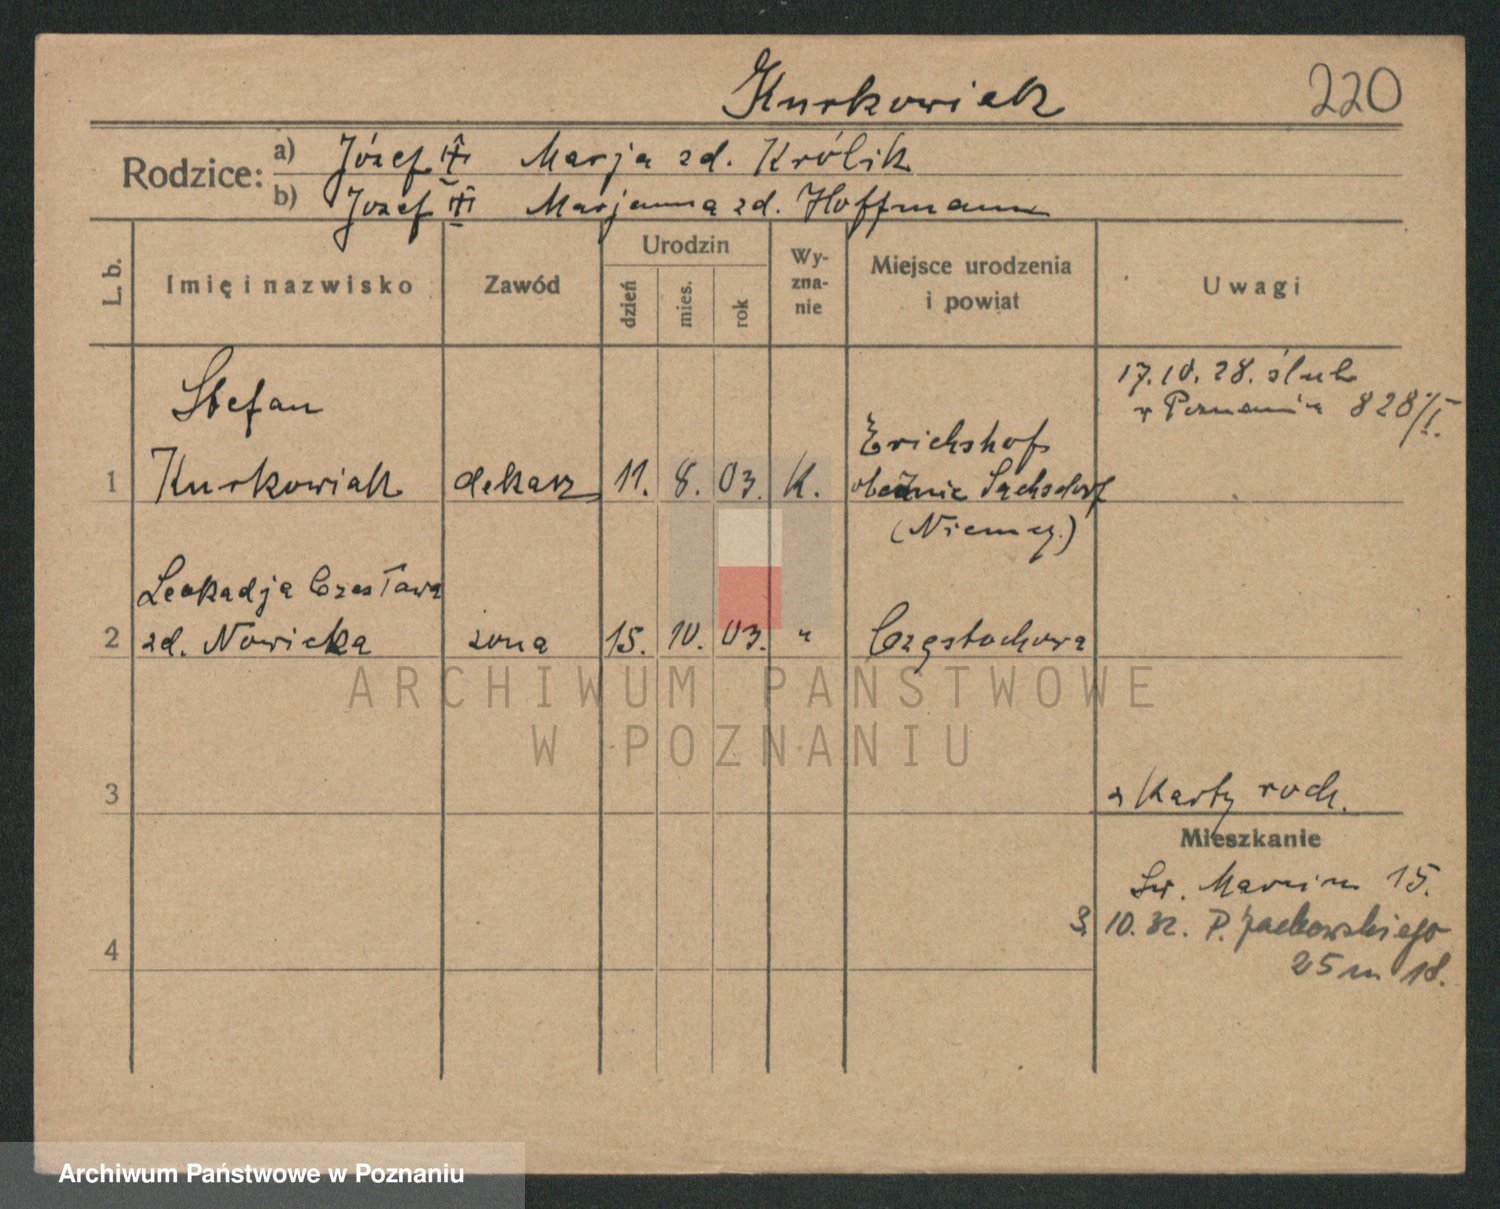 Kurkowiak 220
Rodzice:
a) Józef Marja zd. Królik
b) Jozef Marjanna zd. Hoffmann
L. b.
Imię i nazwisko
Zawód
Urodzin
dzień
mies.
rok
Wy-
zna-
nie
Miejsce urodzenia
i powiat
Uwagi
17.10.28. ślub
w Poznaniu 828/I.
Stefan
1 Kurkowiak dekarz 11. 8. 03. K.
Erichshof
obecnie Sachsdorf
(Niemcy.)
Leokadja Czesława
2 zd. Nowicka żona 15. 10. 03. "
Częstochowa
ARCHIWUM PAŃSTWOWE
W POZNANIU
3
z Karty rodz.
Mieszkanie
Św. Marcin 15.
3. 10. 32. P. Jackowskiego
25 m 18.
4
Archiwum Państwowe w Poznaniu